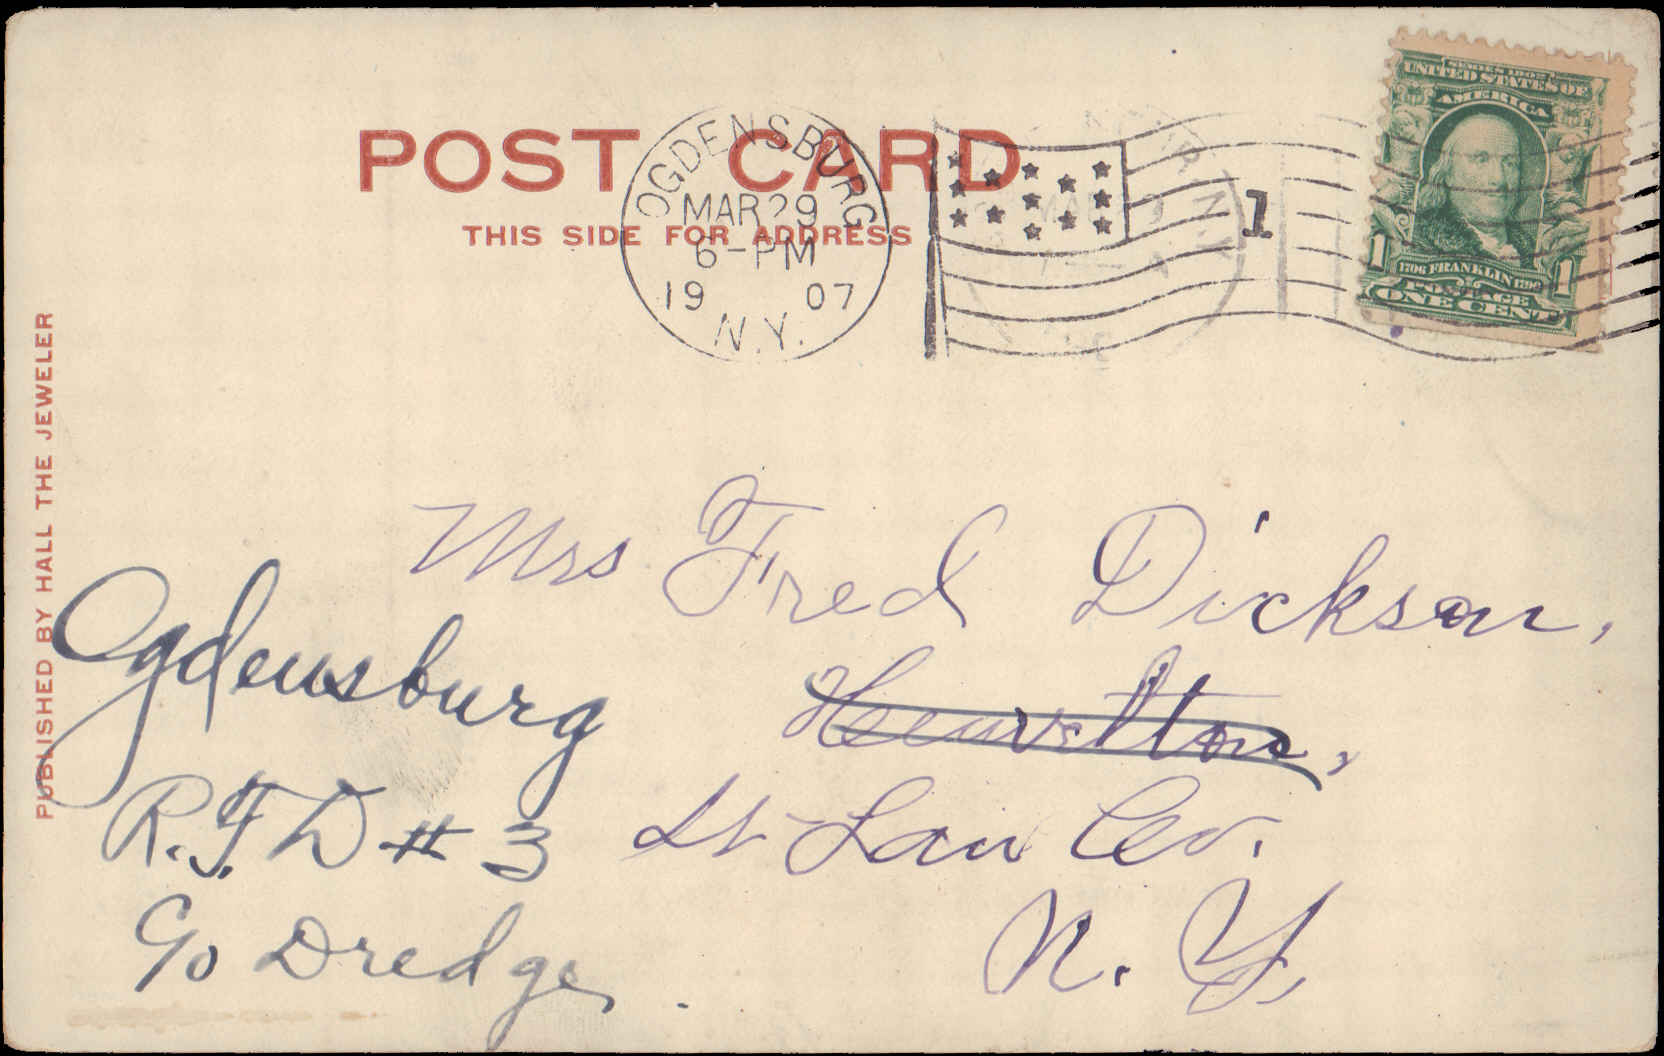 POST CARD
THIS SIDE FOR ADDRESS
OGDENSBURG
MAR 29
6-PM
19 07
N.Y.
1
SERIES 1902
UNITED STATES OF
AMERICA
1706 FRANKLIN 1790
1 1
POSTAGE
ONE CENT
PUBLISHED BY HALL THE JEWELER
Mrs Fred Dickson,
Heuvelton,
St Law Co.
N. Y.
Ogdensburg
R.F.D # 3
c/o Dredge.